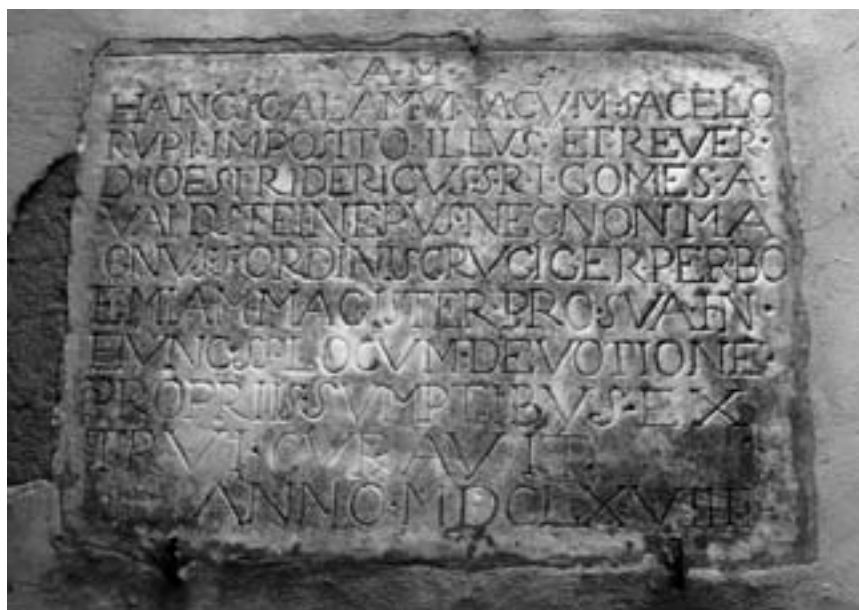 A·M· G·
HANC·SCALAM·VNACVM·SACELO
RVPI·IMPOSITO·ILLVS·ET REVER·
D·IOES FRIDERICVS·S·R·I·COMES·A·
VALDSTEIN EPVS·NECNON MA
GNVS·ORDINIS CRVCIGER·PER BO
EMIAM MAGISTER·PRO·SVA·IN·
EVNC·S·LOCVM·DEVOTIONE·
PROPRIIS·SVMPTIBVS·EX
TRVI·CVRAVIT
ANNO·MDCLXVIII